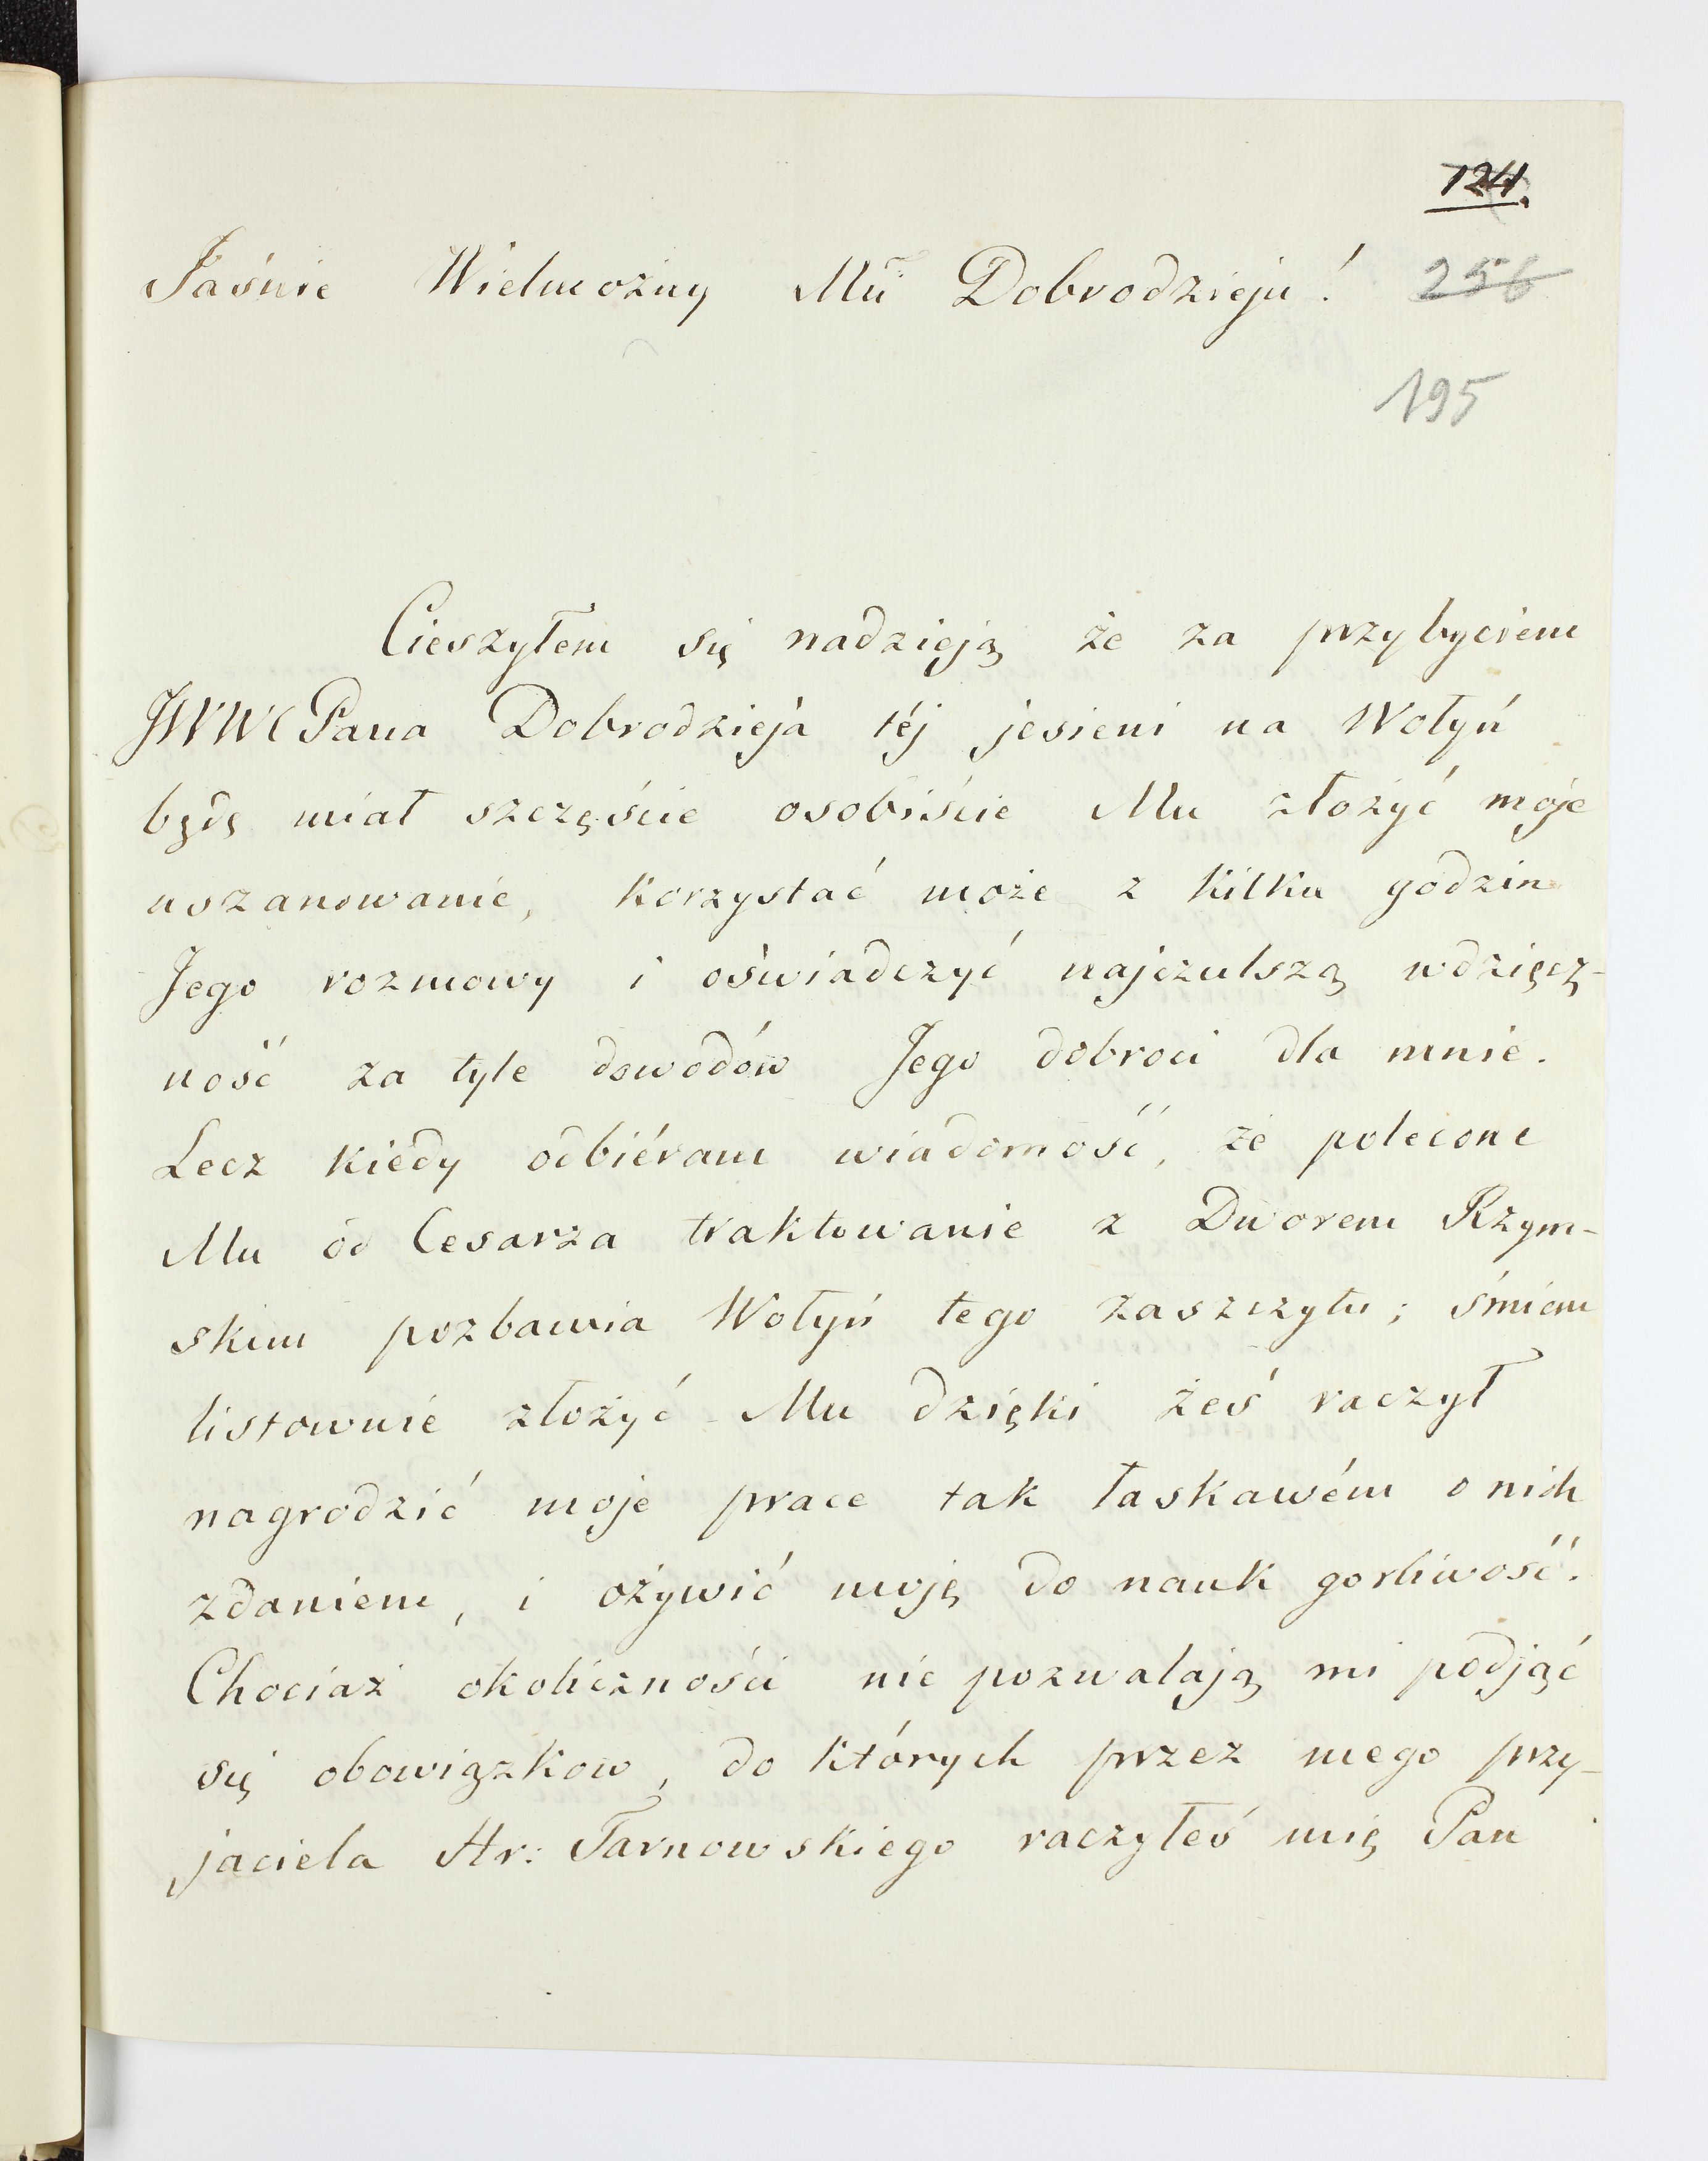 124.
Jaśnie Wielmożny Mći Dobrodzieju!
256
195
Cieszyłem się nadzieją że za przybyciem
JWWC Pana Dobrodzieja téj jesieni na Wołyń
będę miał szczęście osobiście Mu złożyć moje
uszanowanie, korzystać może z kilku godzin
Jego rozmowy i oświadczyć najczulszą wdzięcz-
ność za tyle dowodów Jego dobroci dla mnie.
Lecz kiedy odbiéram wiadomość, że polecone
Mu od Cesarza traktowanie z Dworem Rzym-
skim pozbawia Wołyń tego zaszczytu; śmiem
listownie złożyć Mu dzięki żeś raczył
nagrodzić moje prace tak łaskawém o nich
zdaniem, i ożywić moję do nauk gorliwość.
Chociaż okoliczności nie pozwalają mi podjąć
się obowiązkow, do których przez mego przy-
jaciela Hr: Tarnowskiego raczyłeś mię Pan